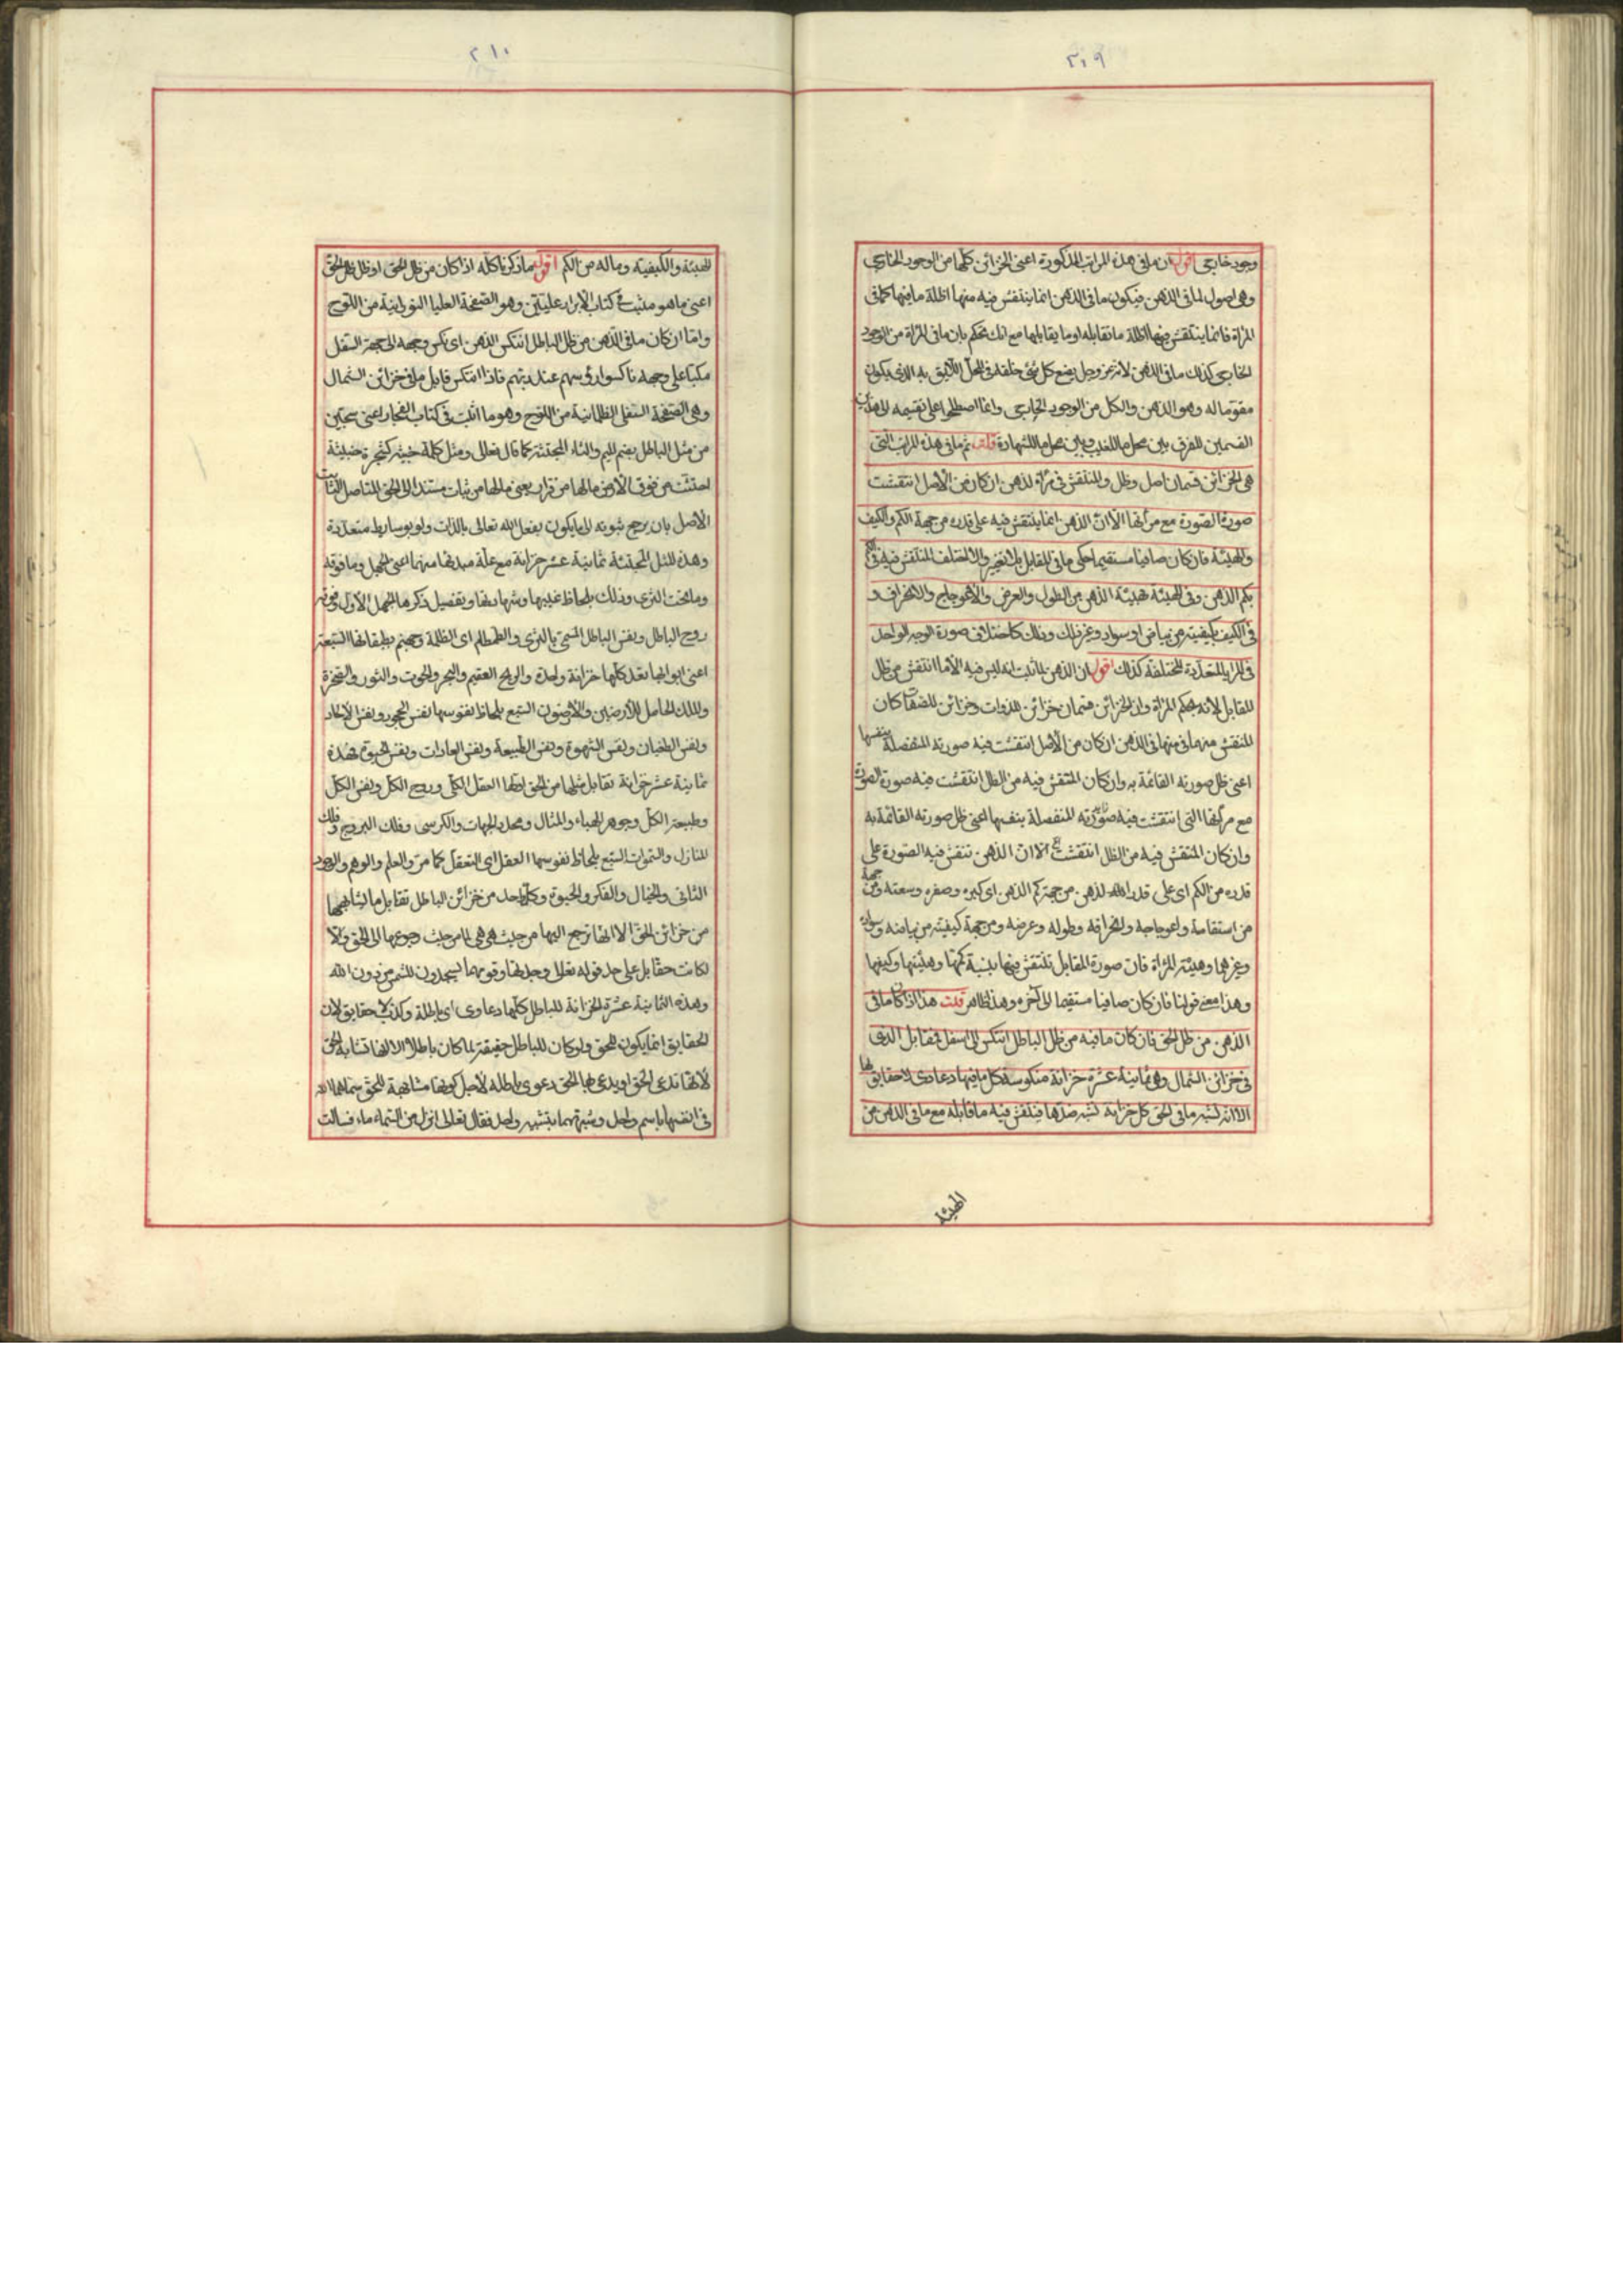 ٢٠٩
وجود خارجى اقول ان ما فى هذه المراتب المذكورة اعنى الخزائن كلها من الوجود الخارجى
وهى اصول لما فى الذهن فيكون ما فى الذهن انما ينتقش فيه منها اظلة ما فيها كما فى
المرآة فانما ينتقش فيها اظلة ما تقابله او ما يقابلها مع انك تحكم بان ما فى المرآة من الوجود
الخارجى كذلك ما فى الذهن لانه عز وجل يضع كل شئ خلقه فى المحل اللايق به الذى يكون
مقوما له وهو الذهن والكل من الوجود الخارجى وانما اصطلحوا على تقسيمه الى هذين
القسمين للفرق بين محل ما للغيب وبين محل ما للشهادة قلت ثم ما فى هذه المراتب التى
هى الخزائن قسمان اصل وظل والمنتقش فى مرآة الذهن ان كان من الاصل انتقشت
صورة الصورة مع مرآتها الا ان الذهن انما ينتقش فيه على قدره من جهة الكم والكيف
والهيئة فان كان صافيا مستقيما حكى ما فى المقابل بلا تغيير والا اختلف المنتقش فيه فى الكم
بكم الذهن وفى الهيئة بهيئة الذهن من الطول والعرض والاعوجاج والانحراف و
فى الكيف بكيفيته من بياض او سواد وغير ذلك وذلك كاختلاف صورة الوجه الواحد
فى المرايا المتعددة المختلفة كذلك اقول ان الذهن لما ثبت انه ليس فيه الا ما انتقش من ظل
المقابل لانه بحكم المرآة وان الخزائن قسمان خزائن للذوات وخزائن للصفات كان
المنتقش منها فى الذهن ان كان من الاصل انتقشت فيه صورته المنفصلة بنفسها
اعنى ظل صورته القائمة به وان كان المنتقش فيه من الظل انتقشت فيه صورة الصورة
مع مرآتها التى انتقشت فيه صورته المنفصلة بنفسها اعنى ظل صورته القائمة به
وان كان المنتقش فيه من الظل انتقشت الا ان الذهن تنقش فيه الصورة على
قدره من الكم اى على قدر الذهن من جهة كم الذهن اى كبره وصغره وسعته ومن جهة
من استقامة واعوجاجه وانحرافه وطوله وعرضه ومن جهة كيفيته من بياضه وسواده
وغيرها وهيئة المرآة فان صورة المقابل تنتقش فيها بنسبة كمها وهيئتها وكيفها
وهذا معنى قولنا فان كان صافيا مستقيما الى آخره وهذا ظاهر قلت هذا اذا كان ما فى
الذهن من ظل الحق فان كان ما فيه من ظل الباطل انتكس الى اسفل فقابل الذى
فى خزائن الشمال وهى ثمانية عشرة خزانة منكوسة كل ما فيها دعاوى لا حقايق لها
الا انه تشبه ما فى الحق كل خزانة تشبه ضدها فينتقش فيه ما قابله مع ما فى الذهن من
الهيئة
٢١٠
الهيئة والكيفية وما له من الكم اقول ما ذكرناه كله اذا كان من ظل الحق او ظل ظل الحق
اعنى ما هو مثبت فى كتاب الابرار عليين وهو الصفحة العليا النورانية من اللوح
واما ان كان ما فى الذهن من ظل الباطل انتكس الذهن اى نكس وجهه الى جهة السفل
مكبا على وجهه ناكسوا رؤسهم عند ربهم فاذا انتكس قابل ما فى خزائن الشمال
وهى الصفحة السفلى الظلمانية من اللوح وهو ما اثبت فى كتاب الفجار اعنى سجين
من مثل الباطل بضم الميم والثاء المجتثة كما قال تعالى ومثل كلمة خبيثة كشجرة خبيثة
اجتثت من فوق الارض ما لها من قرار يعنى ما لها من ثبات مستند الى الحق المتاصل الثابت
الاصل بان يرجع ثبوته الى ما يكون بفعل الله تعالى بالذات ولو بوسايط متعددة
وهذه المثل المجتثة ثمانية عشر خزانة مع علة مبدئها منهما اعنى الجهل وما فوقه
وما تحت الثرى وذلك بلحاظ غيبها وشهادتها وتفصيل ذكرها الجهل الاول وفوقه
روح الباطل ونفس الباطل المسمى بالثرى والطمطام اى الظلمة وجهنم بطبقاتها السبعة
اعنى ابوابها تعد كلها خزانة واحدة والريح العقيم والبحر والحوت والثور والصخرة
والملك الحامل للارضين والارضون السبع بلحاظ نفوسها نفس الجور ونفس الالحاد
ونفس الطغيان ونفس الشهوة ونفس الطبيعة ونفس العادات ونفس الحيوة فهذه
ثمانية عشر خزانة تقابل مثلها من الحق اولها العقل الكلى وروح الكل ونفس الكل
وطبيعة الكل وجوهر الهباء والمثال ومحدد الجهات والكرسى وفلك البروج وفلك
المنازل والسموات السبع بلحاظ نفوسها العقل اى التعقل كما مر والعلم والوهم والوجود
الثانى والخيال والفكر والحيوة وكل واحد من خزائن الباطل تقابل ما يشابهها
من خزائن الحق الا انها ترجع اليها من حيث هى هى لا من حيث رجوعها الى الحق والا
لكانت حقا بل على حد قوله تعالى وجدتها وقومها يسجدون للشمس من دون الله
وهذه الثمانية عشرة الخزانة للباطل كلها دعاوى اى باطلة وكذب لا حقايق لان
الحقايق انما يكون للحق ولو كان للباطل حقيقة لما كان باطلا الا انها تشابه الحق
لانها تدعى الحق او يدعى بها الحق دعوى باطلة لاجل كونها مشابهة للحق سماهما الله
فى انفسها باسم واحد وشبههما بتشبيه واحد فقال تعالى انزل من السماء ماء فسالت